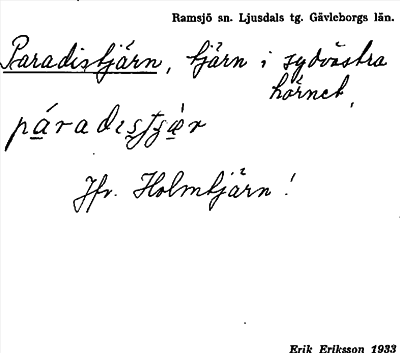 Ramsjö sn. Ljusdals tg. Gävleborgs län.
Paradistjärn, tjärn i sydvästra
hörnet,
páradistjæ̀r
Jfr. Holmtjärn!
Erik Eriksson 1933